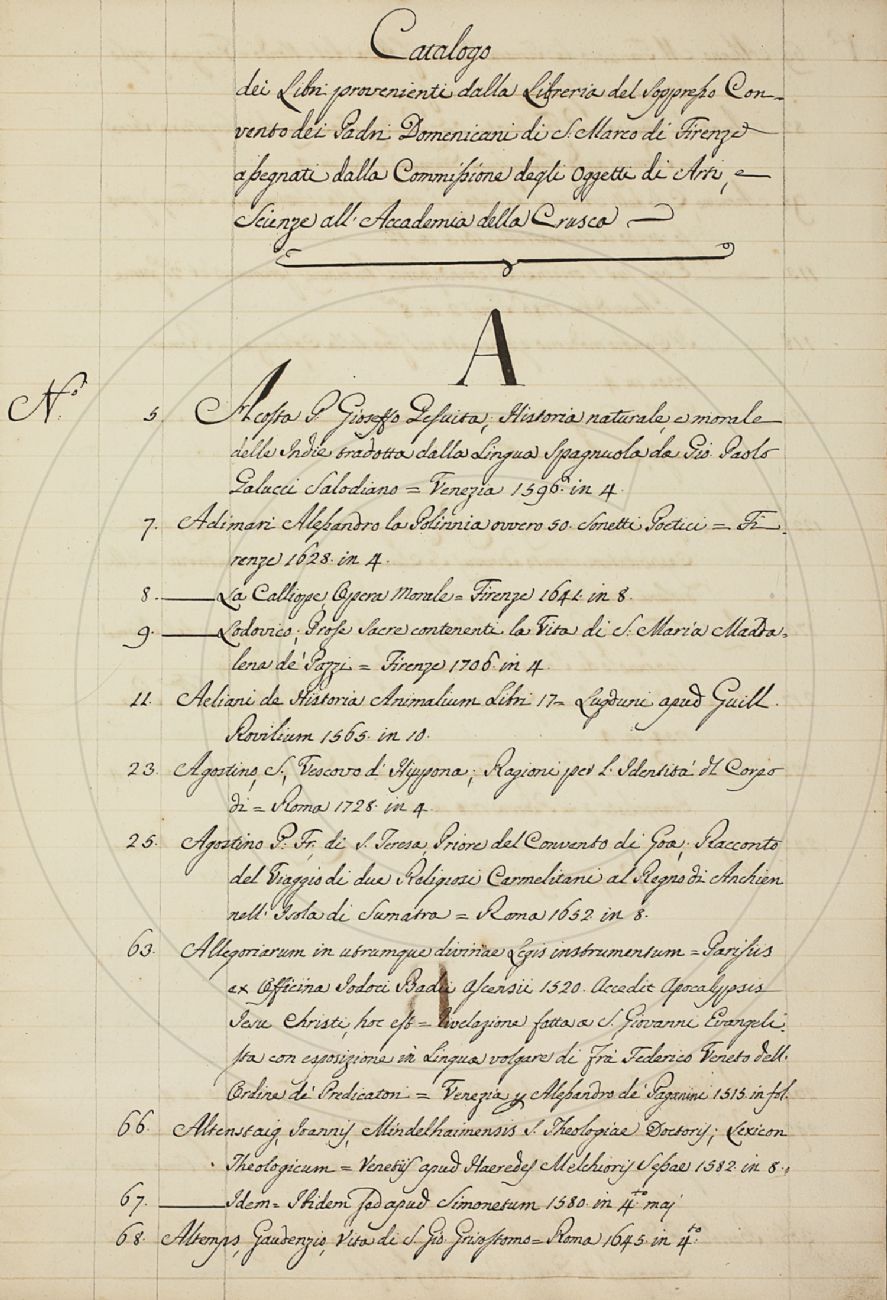 Catalogo
dei Libri provenienti dalla Libreria del Soppresso Con-
vento dei Padri Domenicani di S. Marco di Firenze
assegnati dalla Commissione degli Oggetti di Arti, e
Scienze all'Accademia della Crusca
A
Nº. 5. Acosta P. Gioseffo Gesuita; Historia naturale, e morale
delle Indie tradotta dalla Lingua Spagnuola da Gio. Paolo
Galucci Salodiano = Venezia 1596. in 4.
7. Adimari Alessandro la Polinnia ovvero 50. Sonetti Poetici = Fi-
renze 1628. in 4.
8. ——— La Calliope, Opera Morale = Firenze 1641. in 8.
9. ——— Lodovico; Prose Sacre contenenti la Vita di S. Maria Madda-
lena de' Pazzi = Firenze 1706. in 4.
11. Aeliani de Historia Animalium Libri 17 = Lugduni apud Guill.
Rovilium 1565. in 10.
23. Agostino, S., Vescovo d'Hyppona; Ragioni per l'Identità dl Corpo
di = Roma 1728. in 4.
25. Agostino P. Fr. di S. Teresa, Priore del Convento di Goa; Racconto
del Viaggio di due Religiosi Carmelitani al Regno di Anchien
nell'Isola di Sumatra = Roma 1652. in 8.
63. Allegoriarum in utrumque divinae Legis instrumentum = Parisiis
ex Officina Jodoci Badii Ascensii 1520. Accedit Apocalypsis
Jesu Christi, hoc est = Rivelazione fatta a S. Giovanni Evangeli-
sta con esposizione in Lingua volgare di Frà Federico Veneto dell'
Ordine de' Predicatori = Venezia p Alessandro de' Paganini 1515. in fol.
66. Altenstaig, Joannis, Mindelhaimensis S. Theologiae Doctoris; Lexicon
Theologicum = Venetiis apud Haeredes Melchioris Sessae 1582. in 8.
67. ——— Idem = Ibidem sed apud Simonetum 1580. in 4.to maj
68. Altemps, Gaudenzio, Vita di S. Gio. Grisostomo = Roma 1645. in 4.to